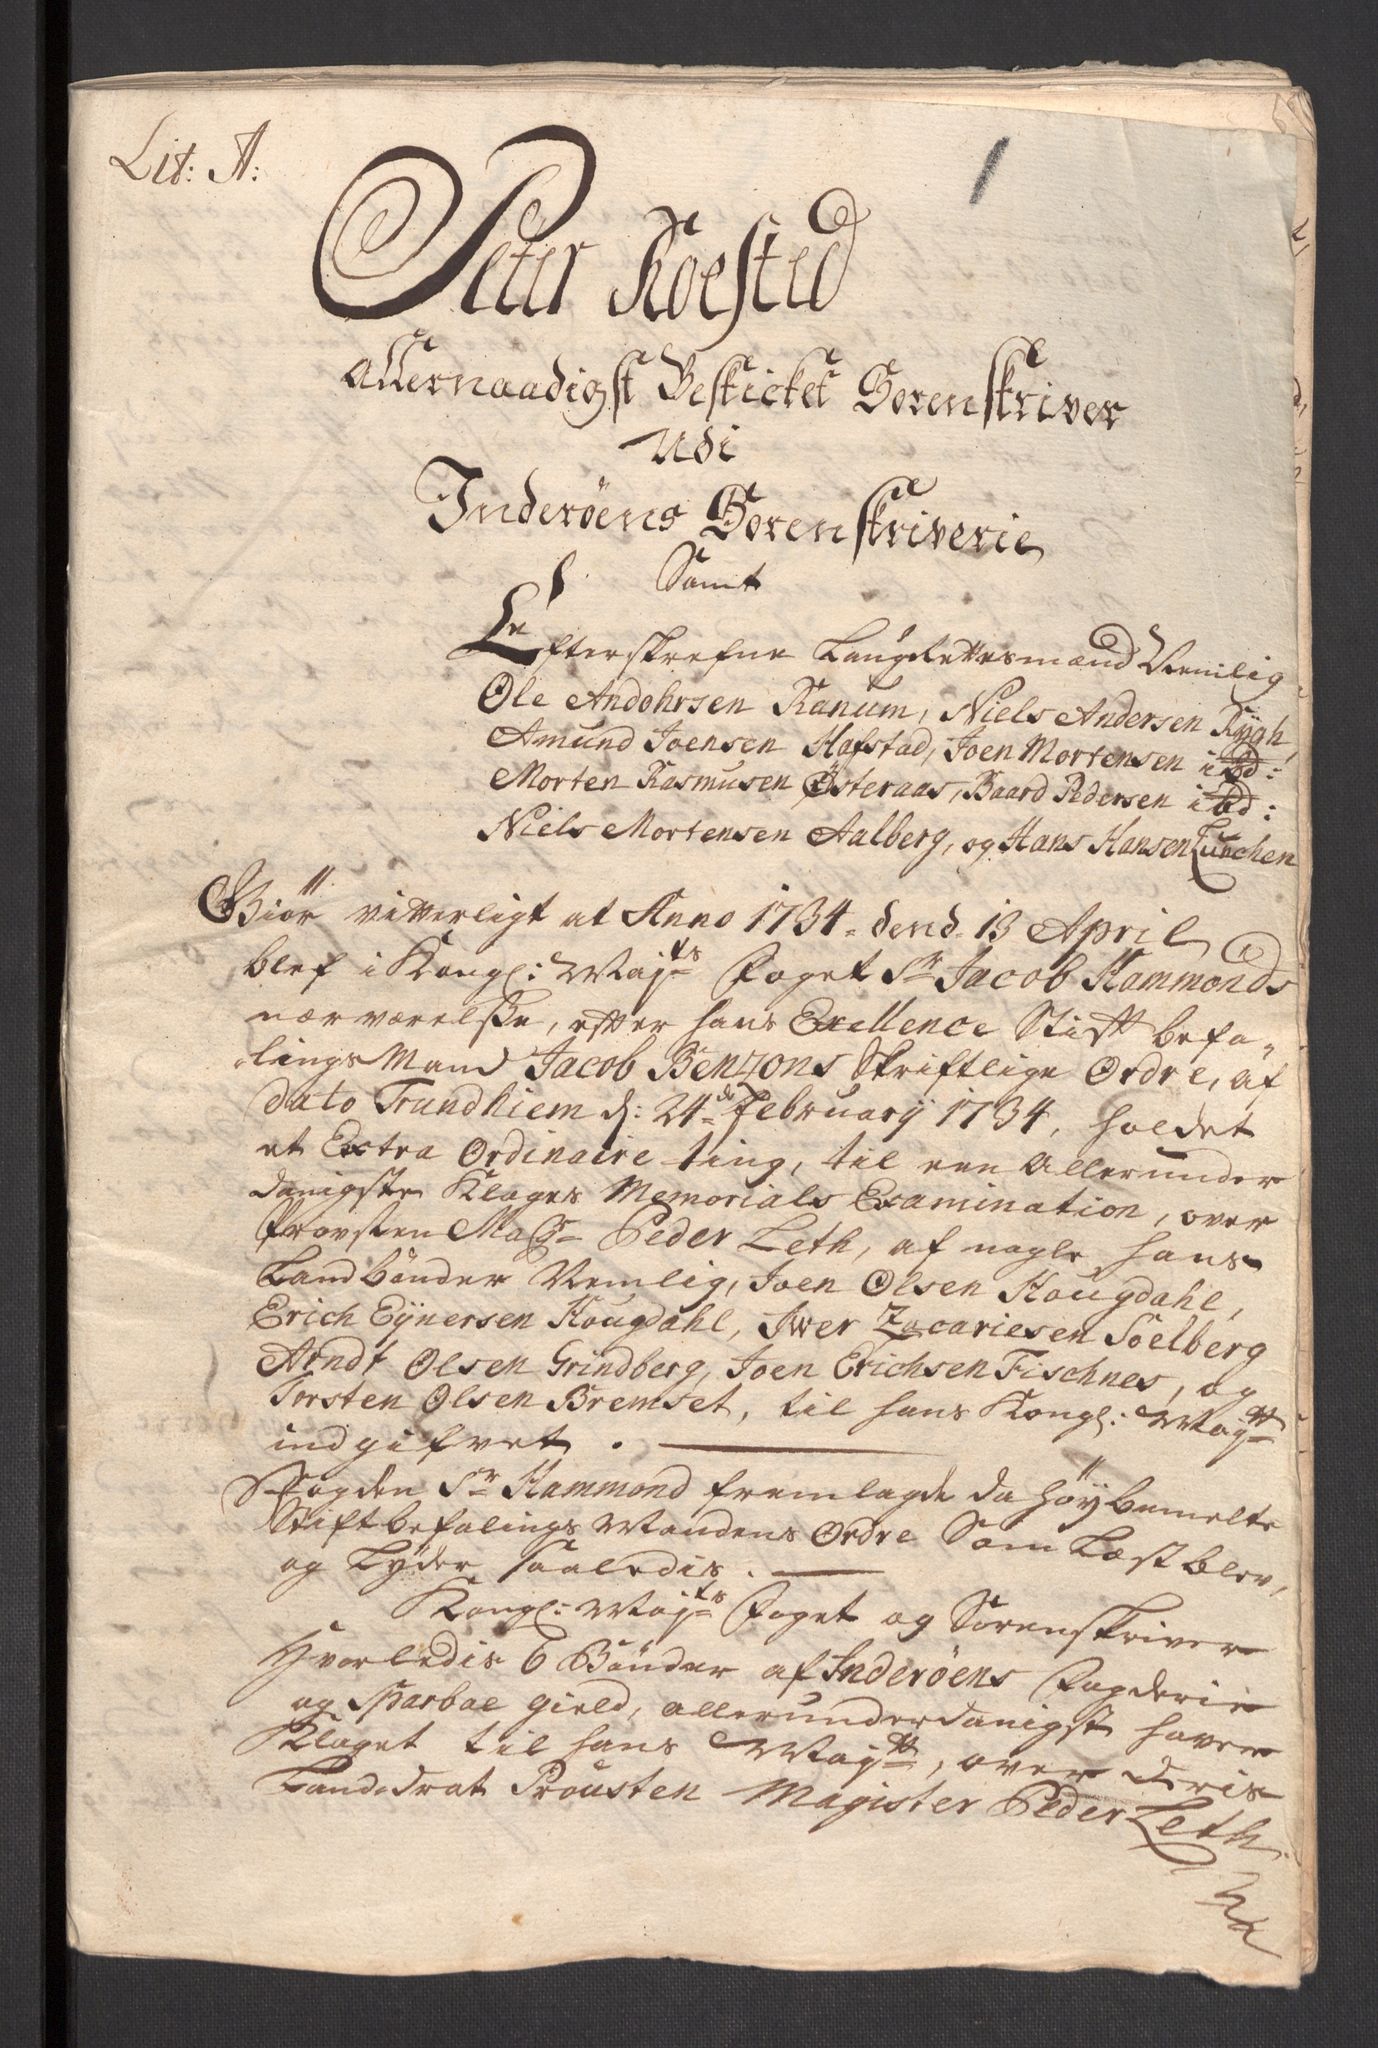 Lit: A:
1
Peter Koested
Allernaadigst Beskicket Sorenskriver
Udi
Inderöens Sorenskriverie
Samt
Efterskrefne Laugrettesmænd Nemlig
Ole Andohrsen Kanum, Niels Andersen Rygh,
Amund Joensen Hafstad, Joen Mortensen ibd:
Morten Rasmusen Österaas, Baard Pedersen ibd:
Niels Mortensen Aalberg, og Hans Hansen Lunchen
Giör vitterligt at Anno 1734 dend 13 April
blef i Kongl: Mayts Foget Sr Jacob Hammonds
nærværelße, efter hans Exellence Stift befa-
lings Mand Jacob Benzons Skriftlige Ordre, af
dato Trundhiem d: 24de February 1734, holdet
et Extra Ordinaire ting, til een Allerunder
danigste Klages Memorials Examination, over
Provsten Magr Peder Leth, af nogle hans
Landbönder Nemlig, Joen Olsen Hougdahl,
Erich Eÿnersen Hougdahl, Iwer Zacariesen Soelberg
Arndt Olsen Grindberg, Joen Erichsen Fischnes, og
Torsten Olsen Bremset, til hans Kongl: Mayt
indgifvet.
Fogden Sr Hammond fremlagde da höybemelte
Stiftbefalings Mandens Ordre Som Læst blev,
og Lÿder saaledis.
Kongl: Mayts Foget og Sorenskriver
Hvorledis 6 Bönder af Inderöens Fogderie
og Sparboe Gield, allerunderdanigst haver
Klaget til hans Mayt, over deris
Landsdrat Prousten Magister Peder Leth.